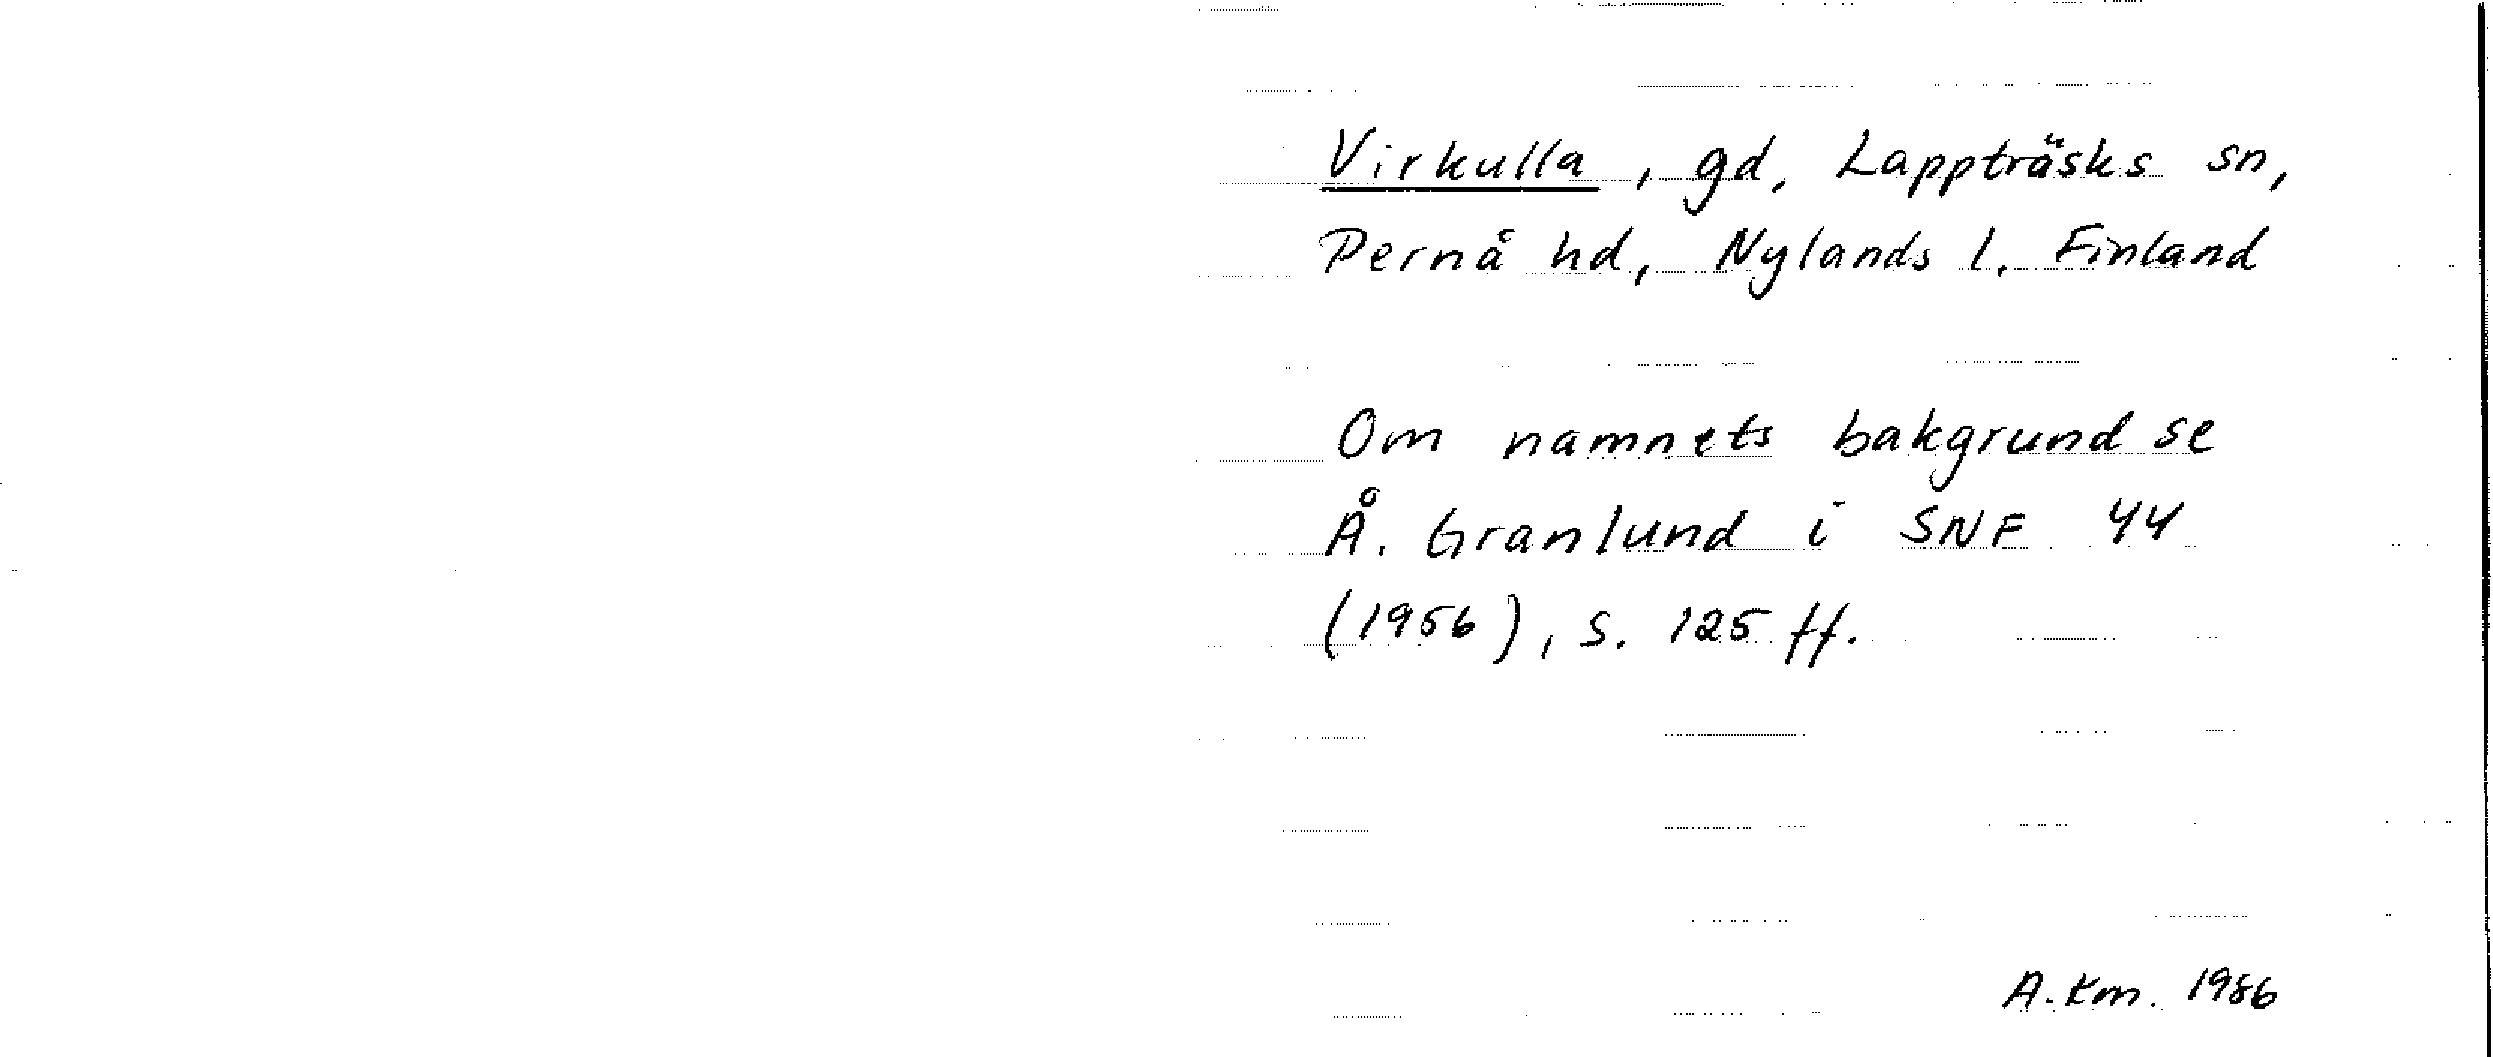 Virkulla, gd, Lappträsks sn,
Pernå hd, Nylands l. Finland
Om namnets bakgrund se
Å. Granlund i SNF 44
(1956), s. 125 ff.
A. Km. 1986